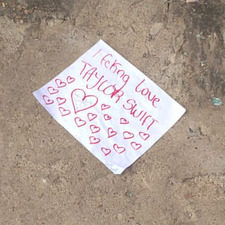 I fcking love
TAYLOR SWIFT